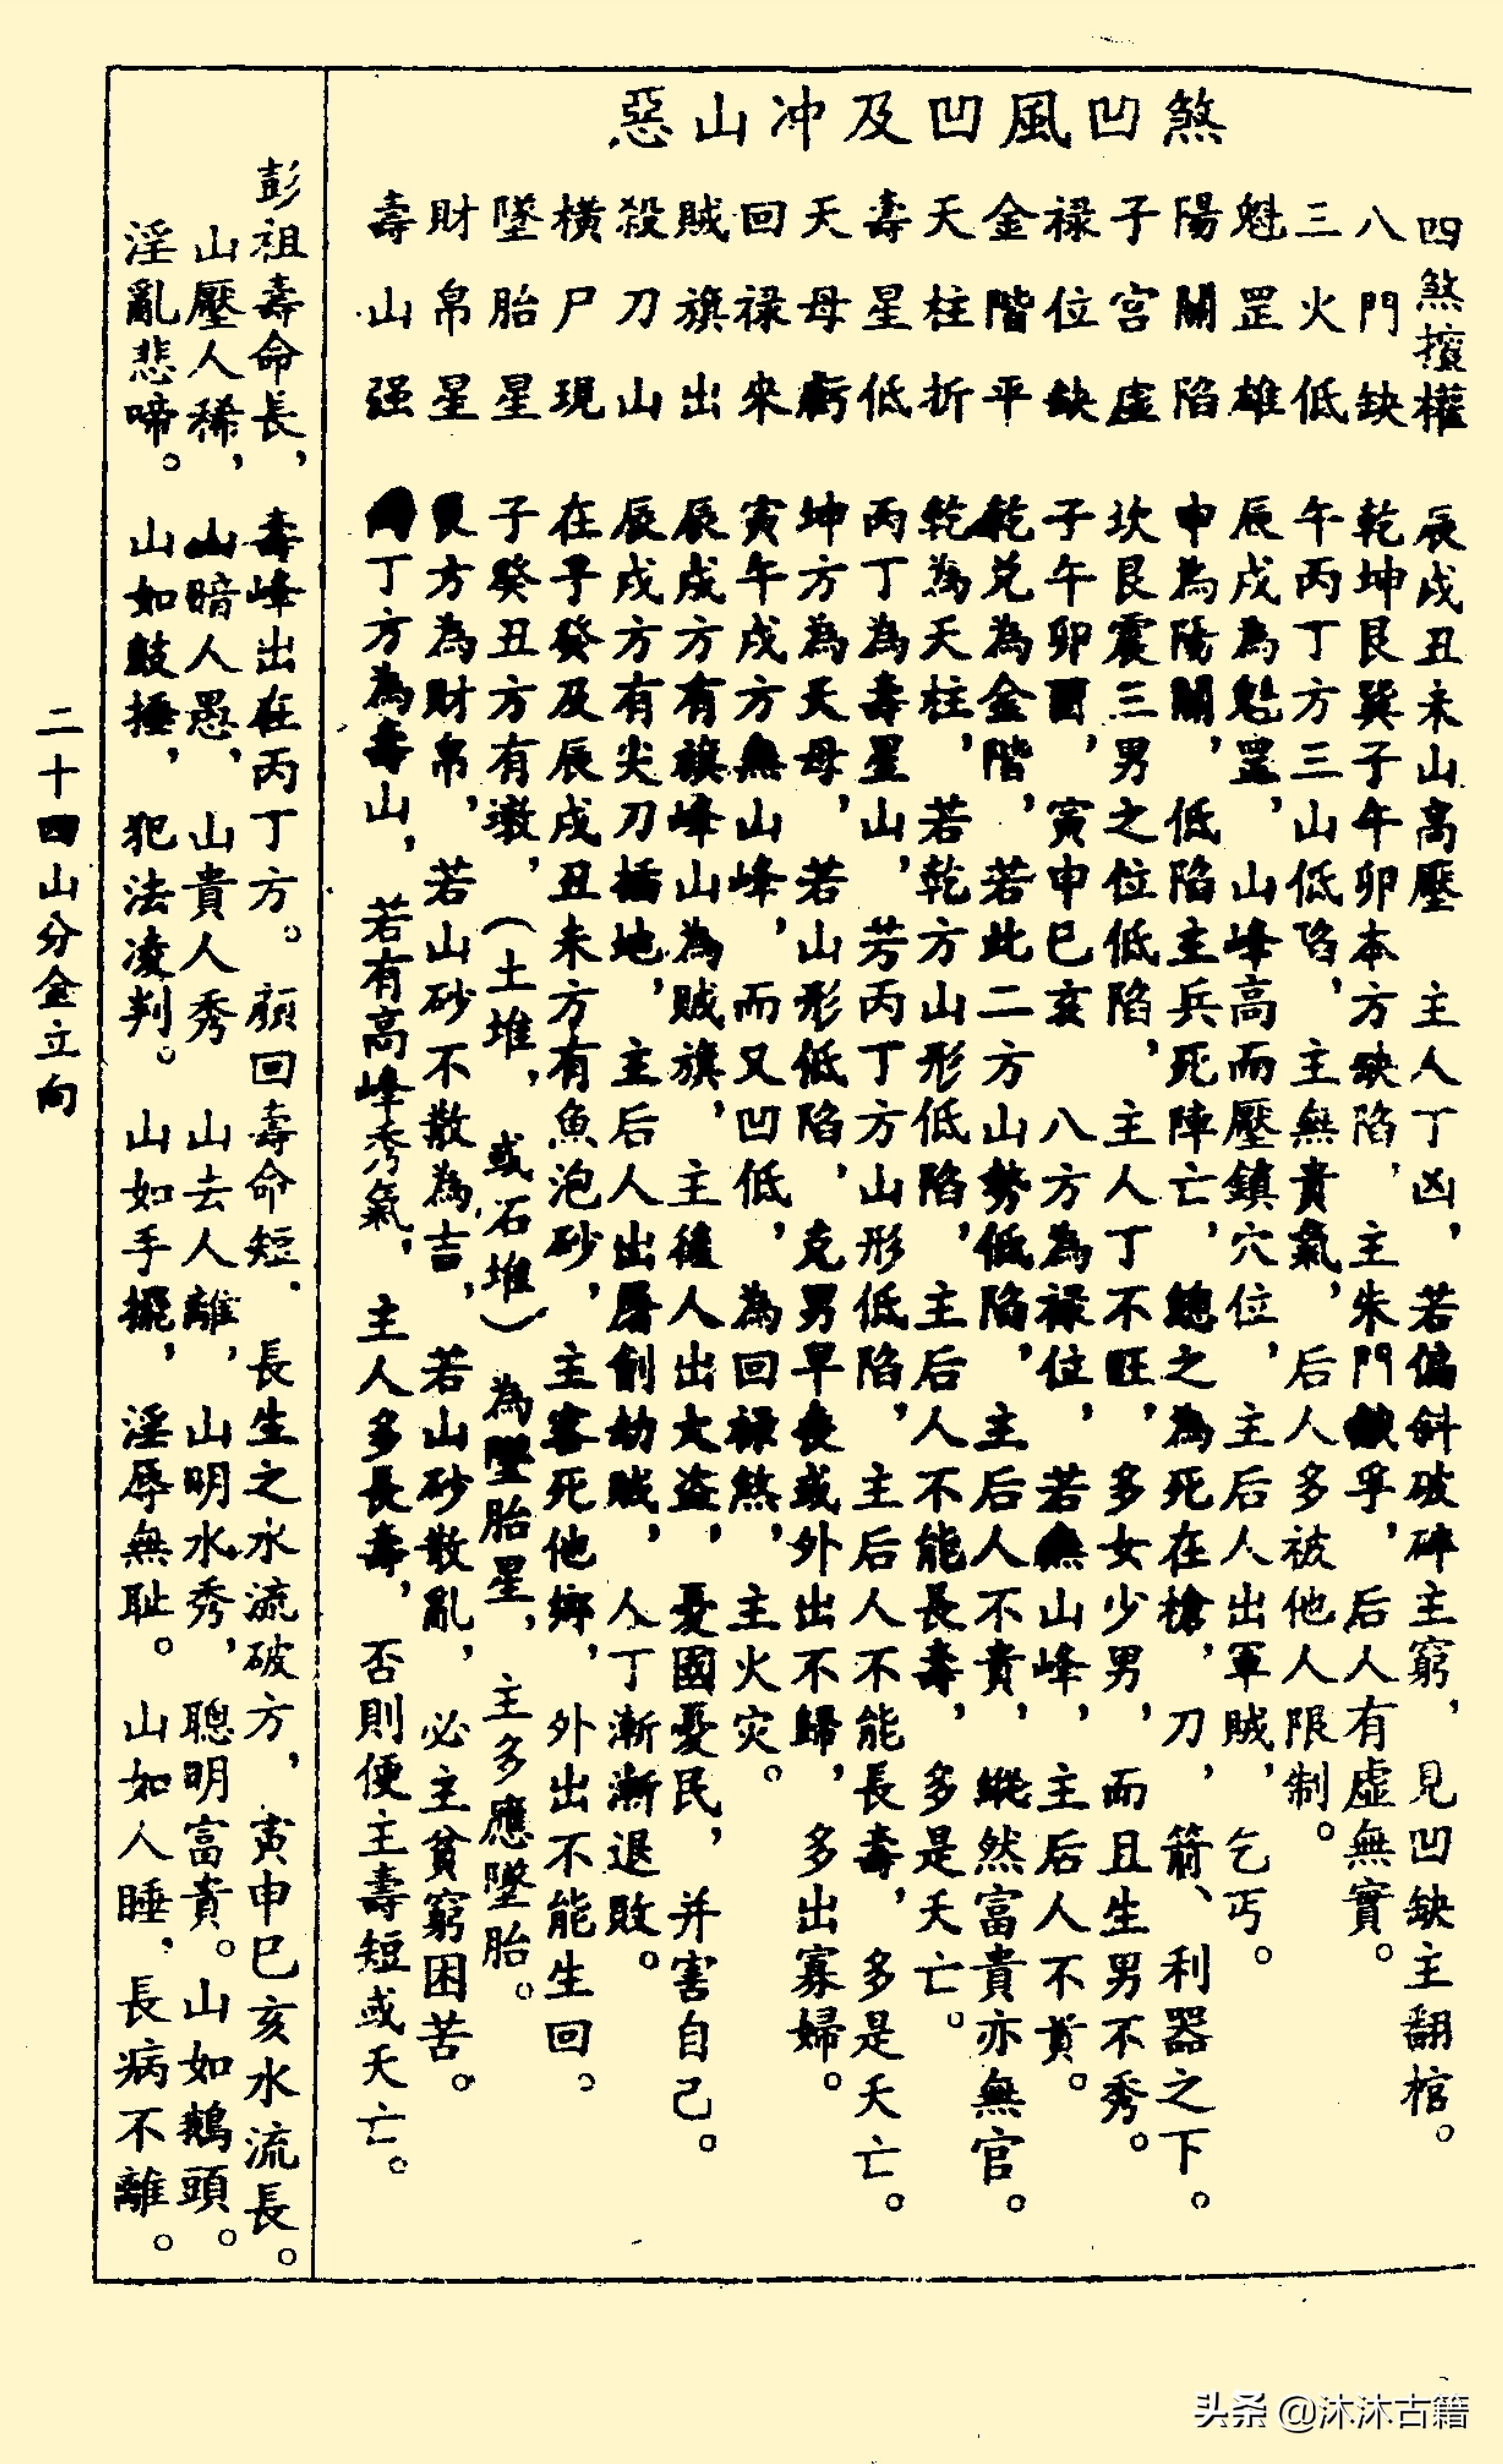 煞凹風凹及冲山惡
四煞擅權 辰戌丑未山高壓 主人丁凶，若偏斜破碎主窮，見凹缺主翻棺。
八門缺 乾坤艮巽子午卯本方缺陷，主朱門 孚，后人有虛無實。
三火低 午丙丁方三山低陷，主無貴氣，后人多被他人限制。
魁罡雄 辰戌為魁罡，山峰高而壓鎮穴位，主后人出軍賊，乞丐。
陽關陷 申為陽關，低陷主兵死陣亡，總之為死在槍，刀，箭、利器之下。
子宮虛 坎艮震三男之位低陷，主人丁不旺，多女少男，而且生男不秀。
禄位缺 子午卯酉，寅申巳亥 八方為禄位，若無山峰，主后人不貴。
金階平 乾兌為金階，若此二方山勢低陷，主后人不貴，縱然富貴亦無官。
天柱折 乾為天柱，若乾方山形低陷，主后人不能長壽，多是夭亡。
壽星低 丙丁為壽星山，芳丙丁方山形低陷，主后人不能長壽，多是夭亡。
天母虧 坤方為天母，若山形低陷，克男早喪或外出不歸，多出寡婦。
回禄來 寅午戌方無山峰，而又凹低，為回禄煞，主火灾。
賊旗出 辰戌方有旗峰山為賊旗，主後人出大盗，憂國憂民，并害自己。
殺刀山 辰戌方有尖刀插地，主后人出屠創劫賊，人丁漸漸退敗。
橫尸現 在子癸及辰戌丑未方有魚泡砂，主客死他鄉，外出不能生回。
墜胎星 子癸丑方有墩，（土堆，或石堆）為墜胎星，主多應墜胎。
財帛星 艮方為財帛，若山砂不散為吉，若山砂散亂，必主貧窮困苦。
壽山强 丙丁方為壽山，若有高峰秀氣，主人多長壽，否則便主壽短或夭亡。
彭祖壽命長，壽峰出在丙丁方。顏回壽命短．長生之水流破方，寅申巳亥水流長。
山壓人稀，山暗人愚，山貴人秀 山去人離，山明水秀，聰明富貴。山如鵝頭。
淫亂悲啼。山如鼓捶，犯法凌判。山如手擺，淫辱無耻。山如人睡，長病不離。
二十四山分金立向
头条 @沐沐古籍